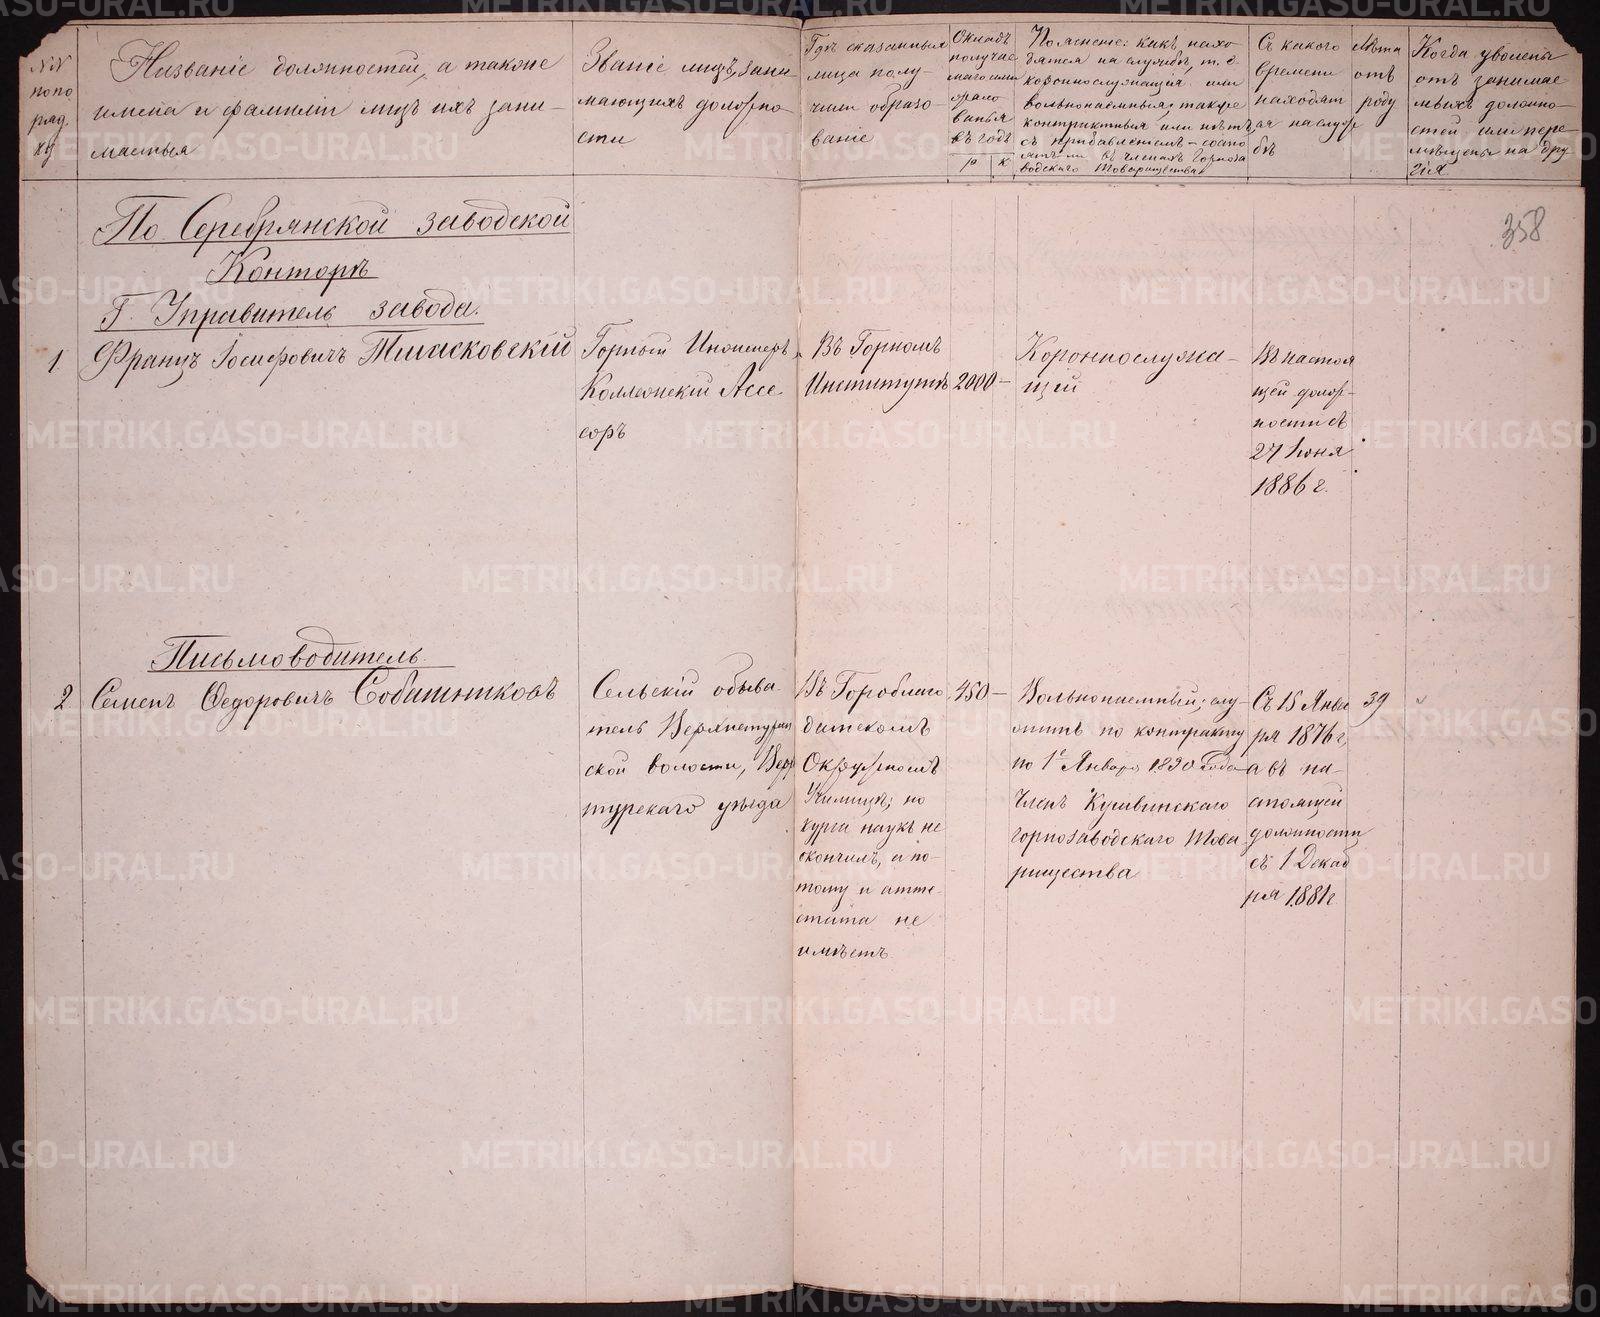 №№ по по ряд ку
Названіе должностей, а также
имена и фамиліи лицъ ихъ зани-
маемыя
Званіе лицъ, зани-
мающихъ должно-
сти
Гдѣ сказанныя
лица полу-
чили образо-
ваніе
Окладъ
получае
маго ими
жало
ванья
въ годъ
Р К
Пояснение: какъ нахо-
дятся на службѣ, т. е.
короннослужащія или
вольнонаемныя, также
контрактныя или нѣтъ
съ прибавленіемъ – состо
ятъ ли въ членахъ Горноза
водскаго Товарищества
Съ какого
времени
находят
ся на служ
бѣ
Лѣта
отъ
роду
Когда уволены
отъ занимае
мыхъ должно-
стей или пере-
мѣщены на дру-
гія
358
По Серебрянской заводской
Конторѣ
Г. Управитель завода.
1 Францъ Іосифовичъ Тписковскій
Горный Инженеръ,
Коллежскій Ассе
соръ
Въ Горномъ
Институтѣ
2000 –
Короннослужа-
щій
Въ настоя
щей долж-
ности съ
27 Іюня
1886 г.
Письмоводитель.
2 Семенъ Федоровичъ Собатников
Сельскій обыва-
тель Верхнетурин
ской волости, Верхо
турскаго уѣзда
Въ Гороблаго
датскомъ
Окружномъ
Училищѣ; но
курса наукъ не
окончилъ, а по-
тому и атте-
стата не
имѣетъ
450 –
Вольнонаемный; слу-
житъ по контракту
по 1е Января 1890 года
Членъ Кушвинскаго
горнозаводскаго Това
рищества
Съ 15 Янва
ря 1876 г,
а въ на-
стоящей
должности
съ 1 Декаб
ря 1881 г
39
METRIKI.GASO-URAL.RU